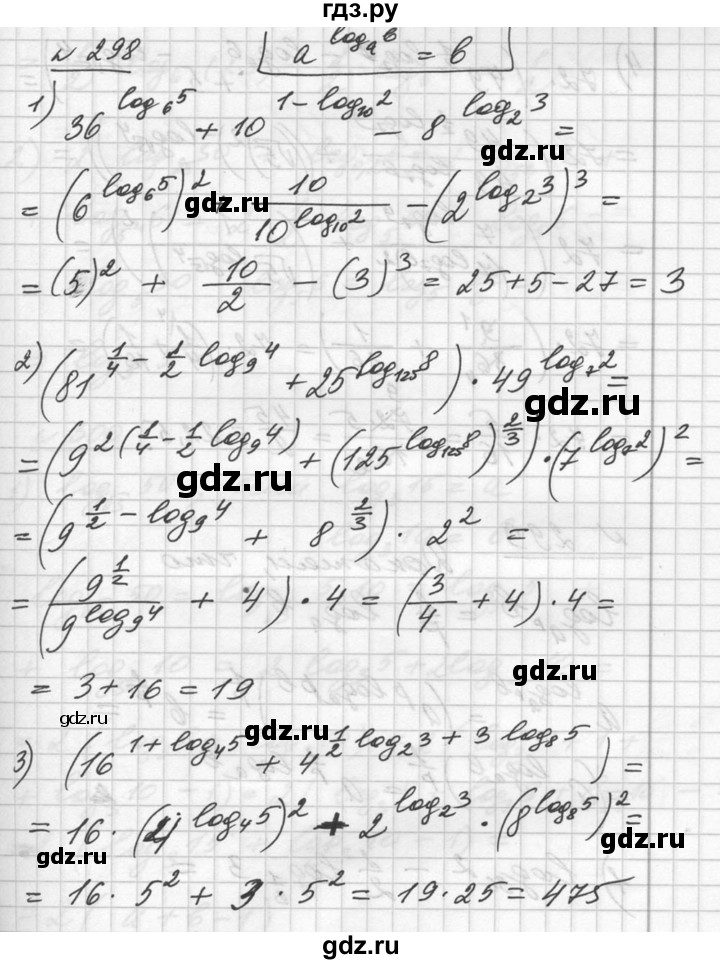 гдз.ру
№ 298 a^{log_a b} = b
1) 36^{log_6 5} + 10^{1 - log_{10} 2} - 8^{log_2 3} =
gdz.ru
= (6^{log_6 5})^2 + \frac{10}{10^{log_{10} 2}} - (2^{log_2 3})^3 =
gdz.ru
gdz.ru
= (5)^2 + \frac{10}{2} - (3)^3 = 25 + 5 - 27 = 3
2) (81^{\frac{1}{4} - \frac{1}{2} log_9 4} + 25^{log_{125} 8}) · 49^{log_7 2} =
gdz.ru
= (9^{2(\frac{1}{4} - \frac{1}{2} log_9 4)} + (125^{log_{125} 8})^{\frac{2}{3}}) · (7^{log_7 2})^2 =
gdz.ru
= (9^{\frac{1}{2} - log_9 4} + 8^{\frac{2}{3}}) · 2^2 =
= (\frac{9^{\frac{1}{2}}}{9^{log_9 4}} + 4) · 4 = (\frac{3}{4} + 4) · 4 =
gdz.ru
= 3 + 16 = 19
gdz.ru
gdz.ru
3) (16^{1 + log_4 5} + 4^{\frac{1}{2} log_2 3 + 3 log_8 5}) =
gdz.ru
= 16 · (4^{log_4 5})^2 + 2^{log_2 3} · (8^{log_8 5})^2 =
gdz.ru
= 16 · 5^2 + 3 · 5^2 = 19 · 25 = 475
gdz.ru